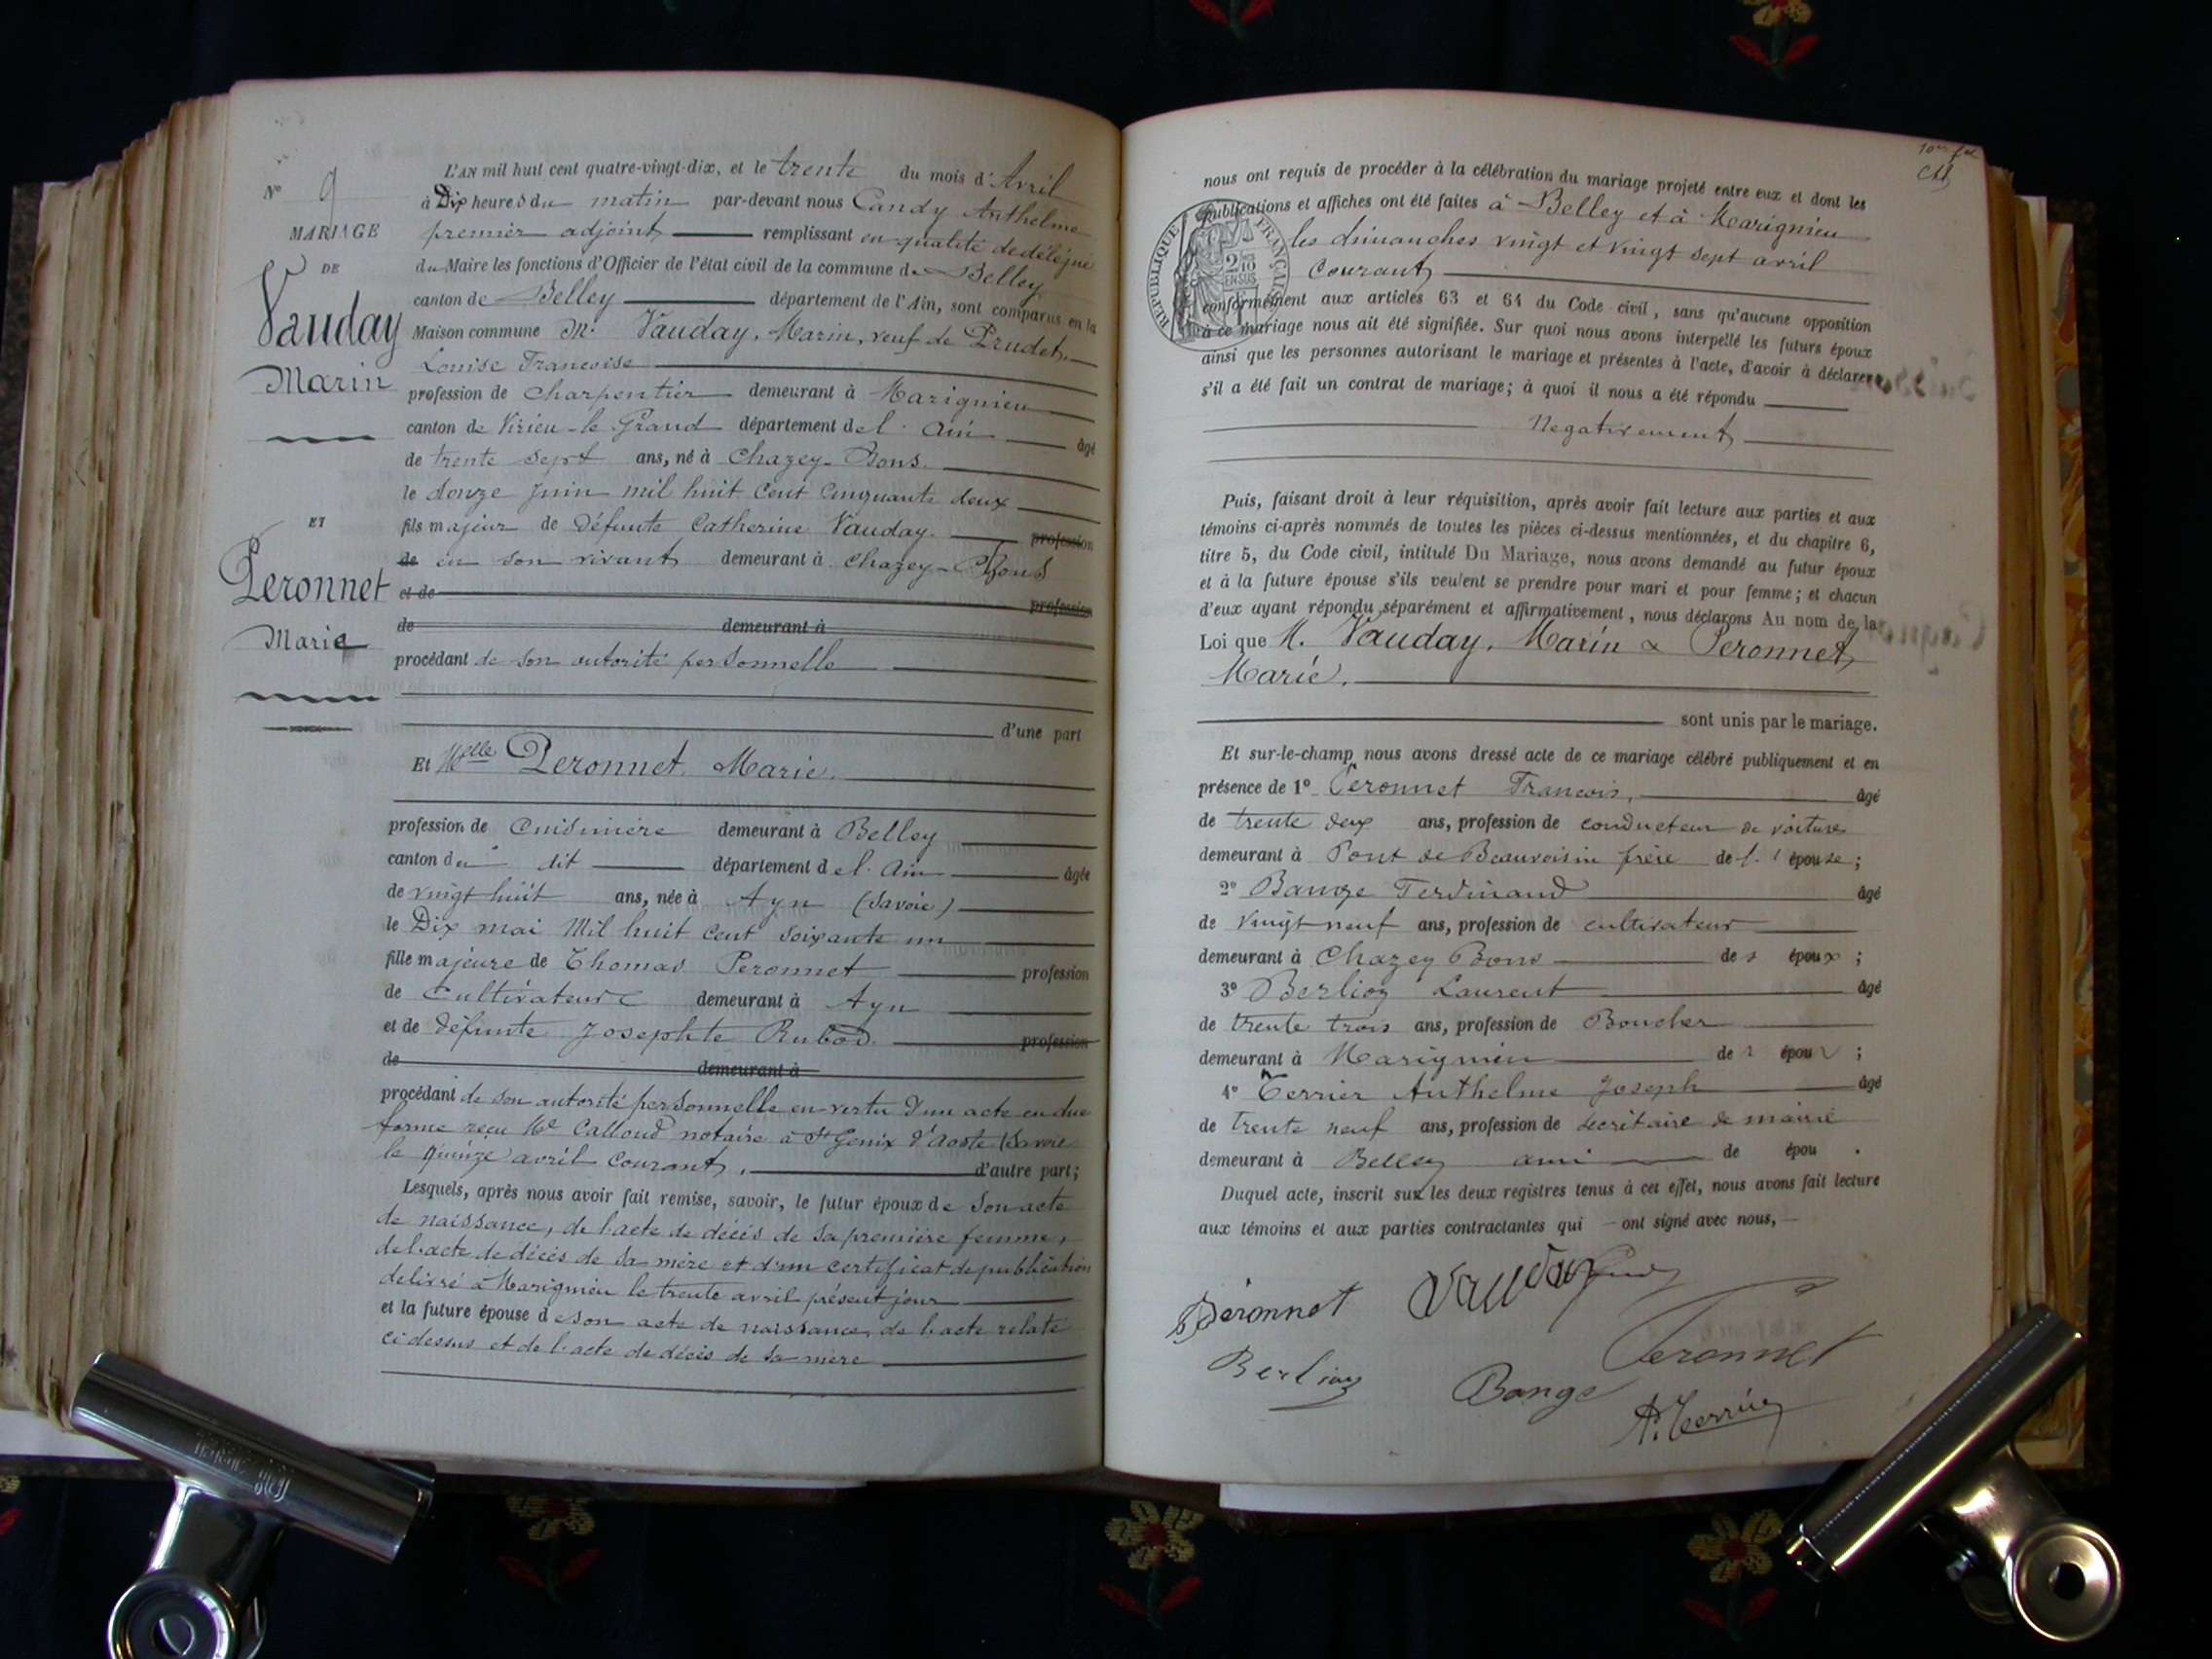 N° 9
MARIAGE
DE
Vauday
Marin
ET
Peronnet
Marie
L'AN mil huit cent quatre-vingt-dix, et le trente du mois d'Avril
à Dix heures du matin par-devant nous Candy Anthelme
premier adjoint remplissant en qualité de délégué
du Maire les fonctions d'Officier de l'état civil de la commune de Belley
canton de Belley département de l'Ain, sont comparus en la
Maison commune M. Vauday, Marin, veuf de Prudet,
Louise Francoise
profession de Charpentier demeurant à Marignieu
canton de Virieu-le-Grand département de l'Ain âgé
de trente sept ans, né à Chazey-Bons.
le douze Juin mil huit cent cinquante deux
fils majeur de défunte Catherine Vauday. profession
de en son vivant demeurant à Chazey-Bons
et de profession
de demeurant à
procédant de son autorité personnelle
d'une part
Et Melle Peronnet Marie.
profession de Cuisinière demeurant à Belley
canton du dit département de l'Ain âgée
de vingt huit ans, née à Ayn (Savoie)
le Dix mai Mil huit cent soixante un
fille majeure de Thomas Peronnet profession
de Cultivateur demeurant à Ayn
et de défunte Josephte Rubod. profession
de demeurant à
procédant de son autorité personnelle en vertu d'un acte en due
forme reçu Me Calloud notaire à St Genix d'Aoste (Savoie
le quinze avril courant, d'autre part;
Lesquels, après nous avoir fait remise, savoir, le futur époux de son acte
de naissance, de l'acte de décès de sa première femme,
de l'acte de décès de sa mère et d'un certificat de publication
delivré à Marignieu le trente avril présent jour
et la future épouse de son acte de naissance, de l'acte relaté
ci dessus et de l'acte de décès de sa mère
nous ont requis de procéder à la célébration du mariage projeté entre eux et dont les
publications et affiches ont été faites à Belley et à Marignieu
les dimanches vingt et vingt sept avril
Courant
RÉPUBLIQUE FRANÇAISE
2/10 EN SUS
conformément aux articles 63 et 64 du Code civil, sans qu'aucune opposition
à ce mariage nous ait été signifiée. Sur quoi nous avons interpellé les futurs époux
ainsi que les personnes autorisant le mariage et présentes à l'acte, d'avoir à déclarer
s'il a été fait un contrat de mariage; à quoi il nous a été répondu
Negativement
Puis, faisant droit à leur réquisition, après avoir fait lecture aux parties et aux
témoins ci-après nommés de toutes les pièces ci-dessus mentionnées, et du chapitre 6,
titre 5, du Code civil, intitulé Du Mariage, nous avons demandé au futur époux
et à la future épouse s'ils veulent se prendre pour mari et pour femme; et chacun
d'eux ayant répondu séparément et affirmativement, nous déclarons Au nom de la
Loi que M. Vauday, Marin & Peronnet,
Marie.
sont unis par le mariage.
Et sur-le-champ nous avons dressé acte de ce mariage célébré publiquement et en
présence de 1° Peronnet Francois, âgé
de trente deux ans, profession de conducteur de voitures
demeurant à Pont de Beauvoisin frère de l' épouse;
2° Bauge Ferdinand âgé
de vingt neuf ans, profession de cultivateur
demeurant à Chazey Bons des époux;
3° Berlioz Laurent âgé
de trente trois ans, profession de Boucher
demeurant à Marignieu de époux;
4° Terrier Anthelme Joseph âgé
de trente neuf ans, profession de secrétaire de mairie
demeurant à Belley ami de épou.
Duquel acte, inscrit sur les deux registres tenus à cet effet, nous avons fait lecture
aux témoins et aux parties contractantes qui ont signé avec nous,
Peronnet Vauday Candy
Berlioz Bange Peronnet
A. Terrier